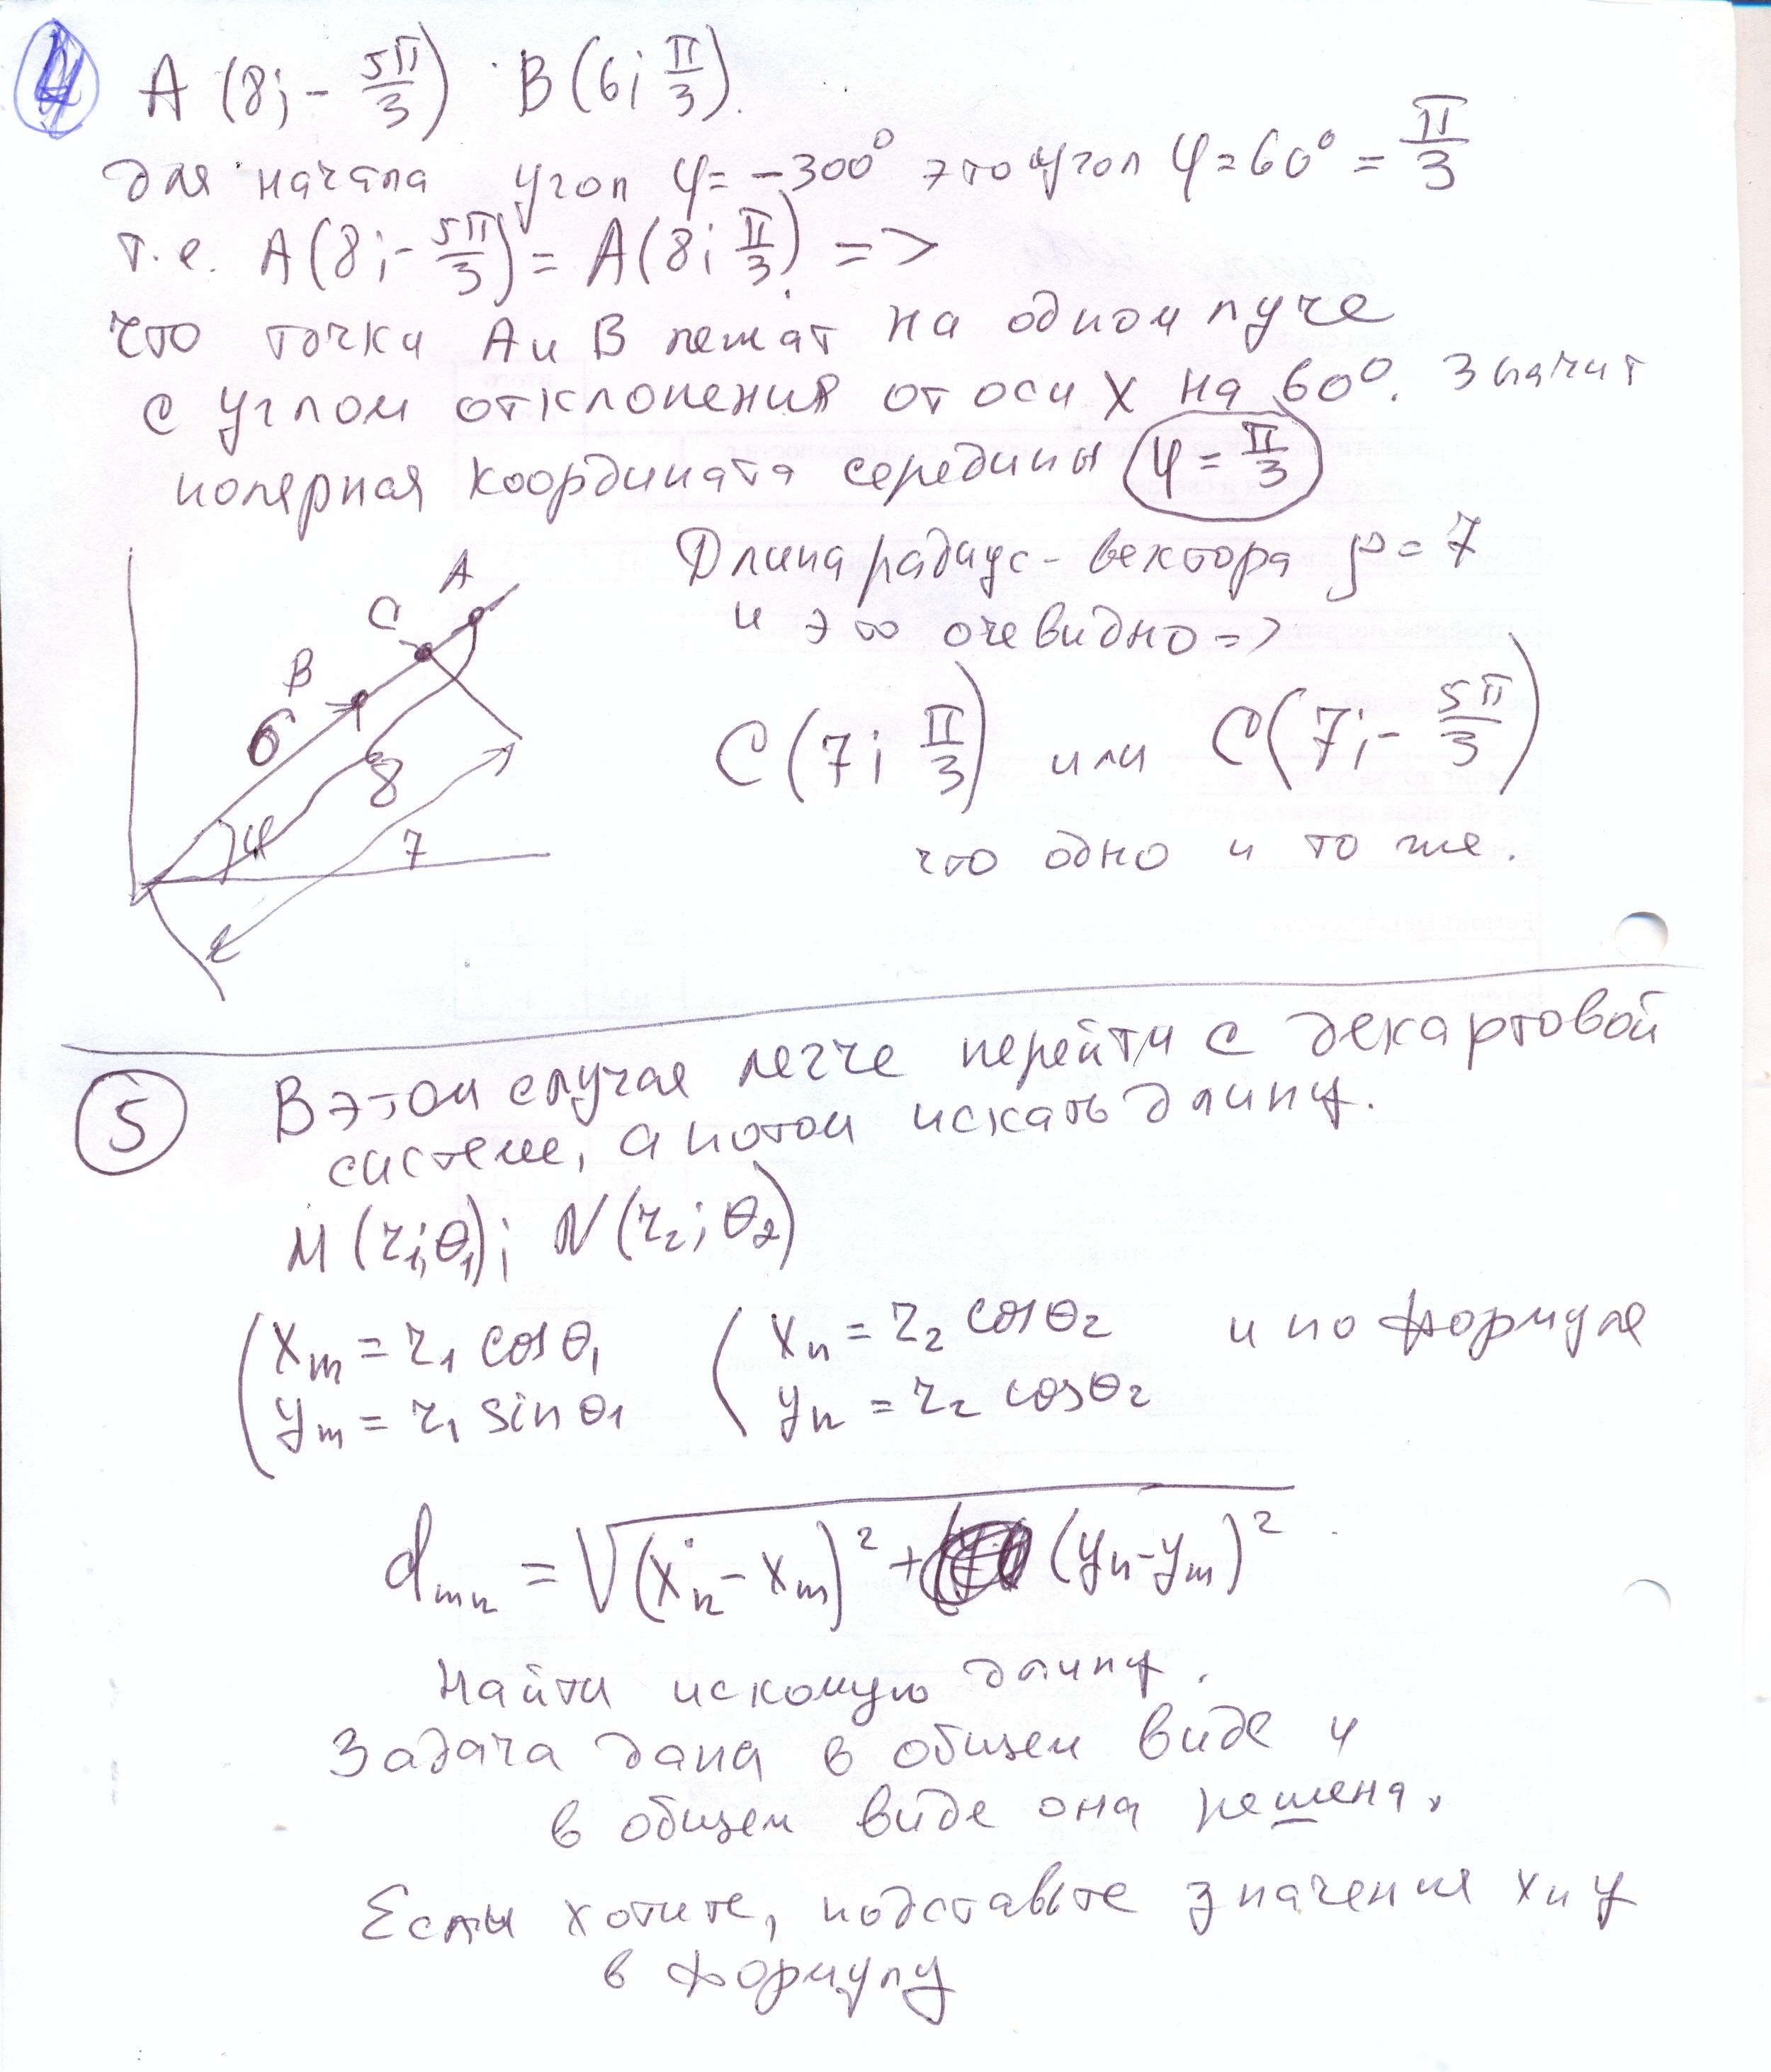 4 A (8; - 5π/3) B (6; π/3).
для начала угол φ = -300° это угол φ = 60° = π/3
т.е. A(8; - 5π/3) = A(8; π/3) =>
что точки A и B лежат на одном луче
с углом отклонения от оси X на 60°. Значит
полярная координата середины φ = π/3
Длина радиус-вектора ρ = 7
и это очевидно =>
C(7; π/3) или C(7; - 5π/3)
что одно и то же.
A
C
B
6
8
φ
7
5 В этом случае легче перейти с декартовой
системе, а потом искать длину.
M (r₁; θ₁); N (r₂; θ₂)
( xₘ = r₁ cosθ₁ ( xₙ = r₂ cosθ₂ и по формуле
yₘ = r₁ sinθ₁ yₙ = r₂ cosθ₂
dₘₙ = √(xₙ - xₘ)² + (yₙ - yₘ)²
Найти искомую длину.
Задача дана в общем виде и
в общем виде она решена.
Если хотите, подставьте значения x и y
в формулу